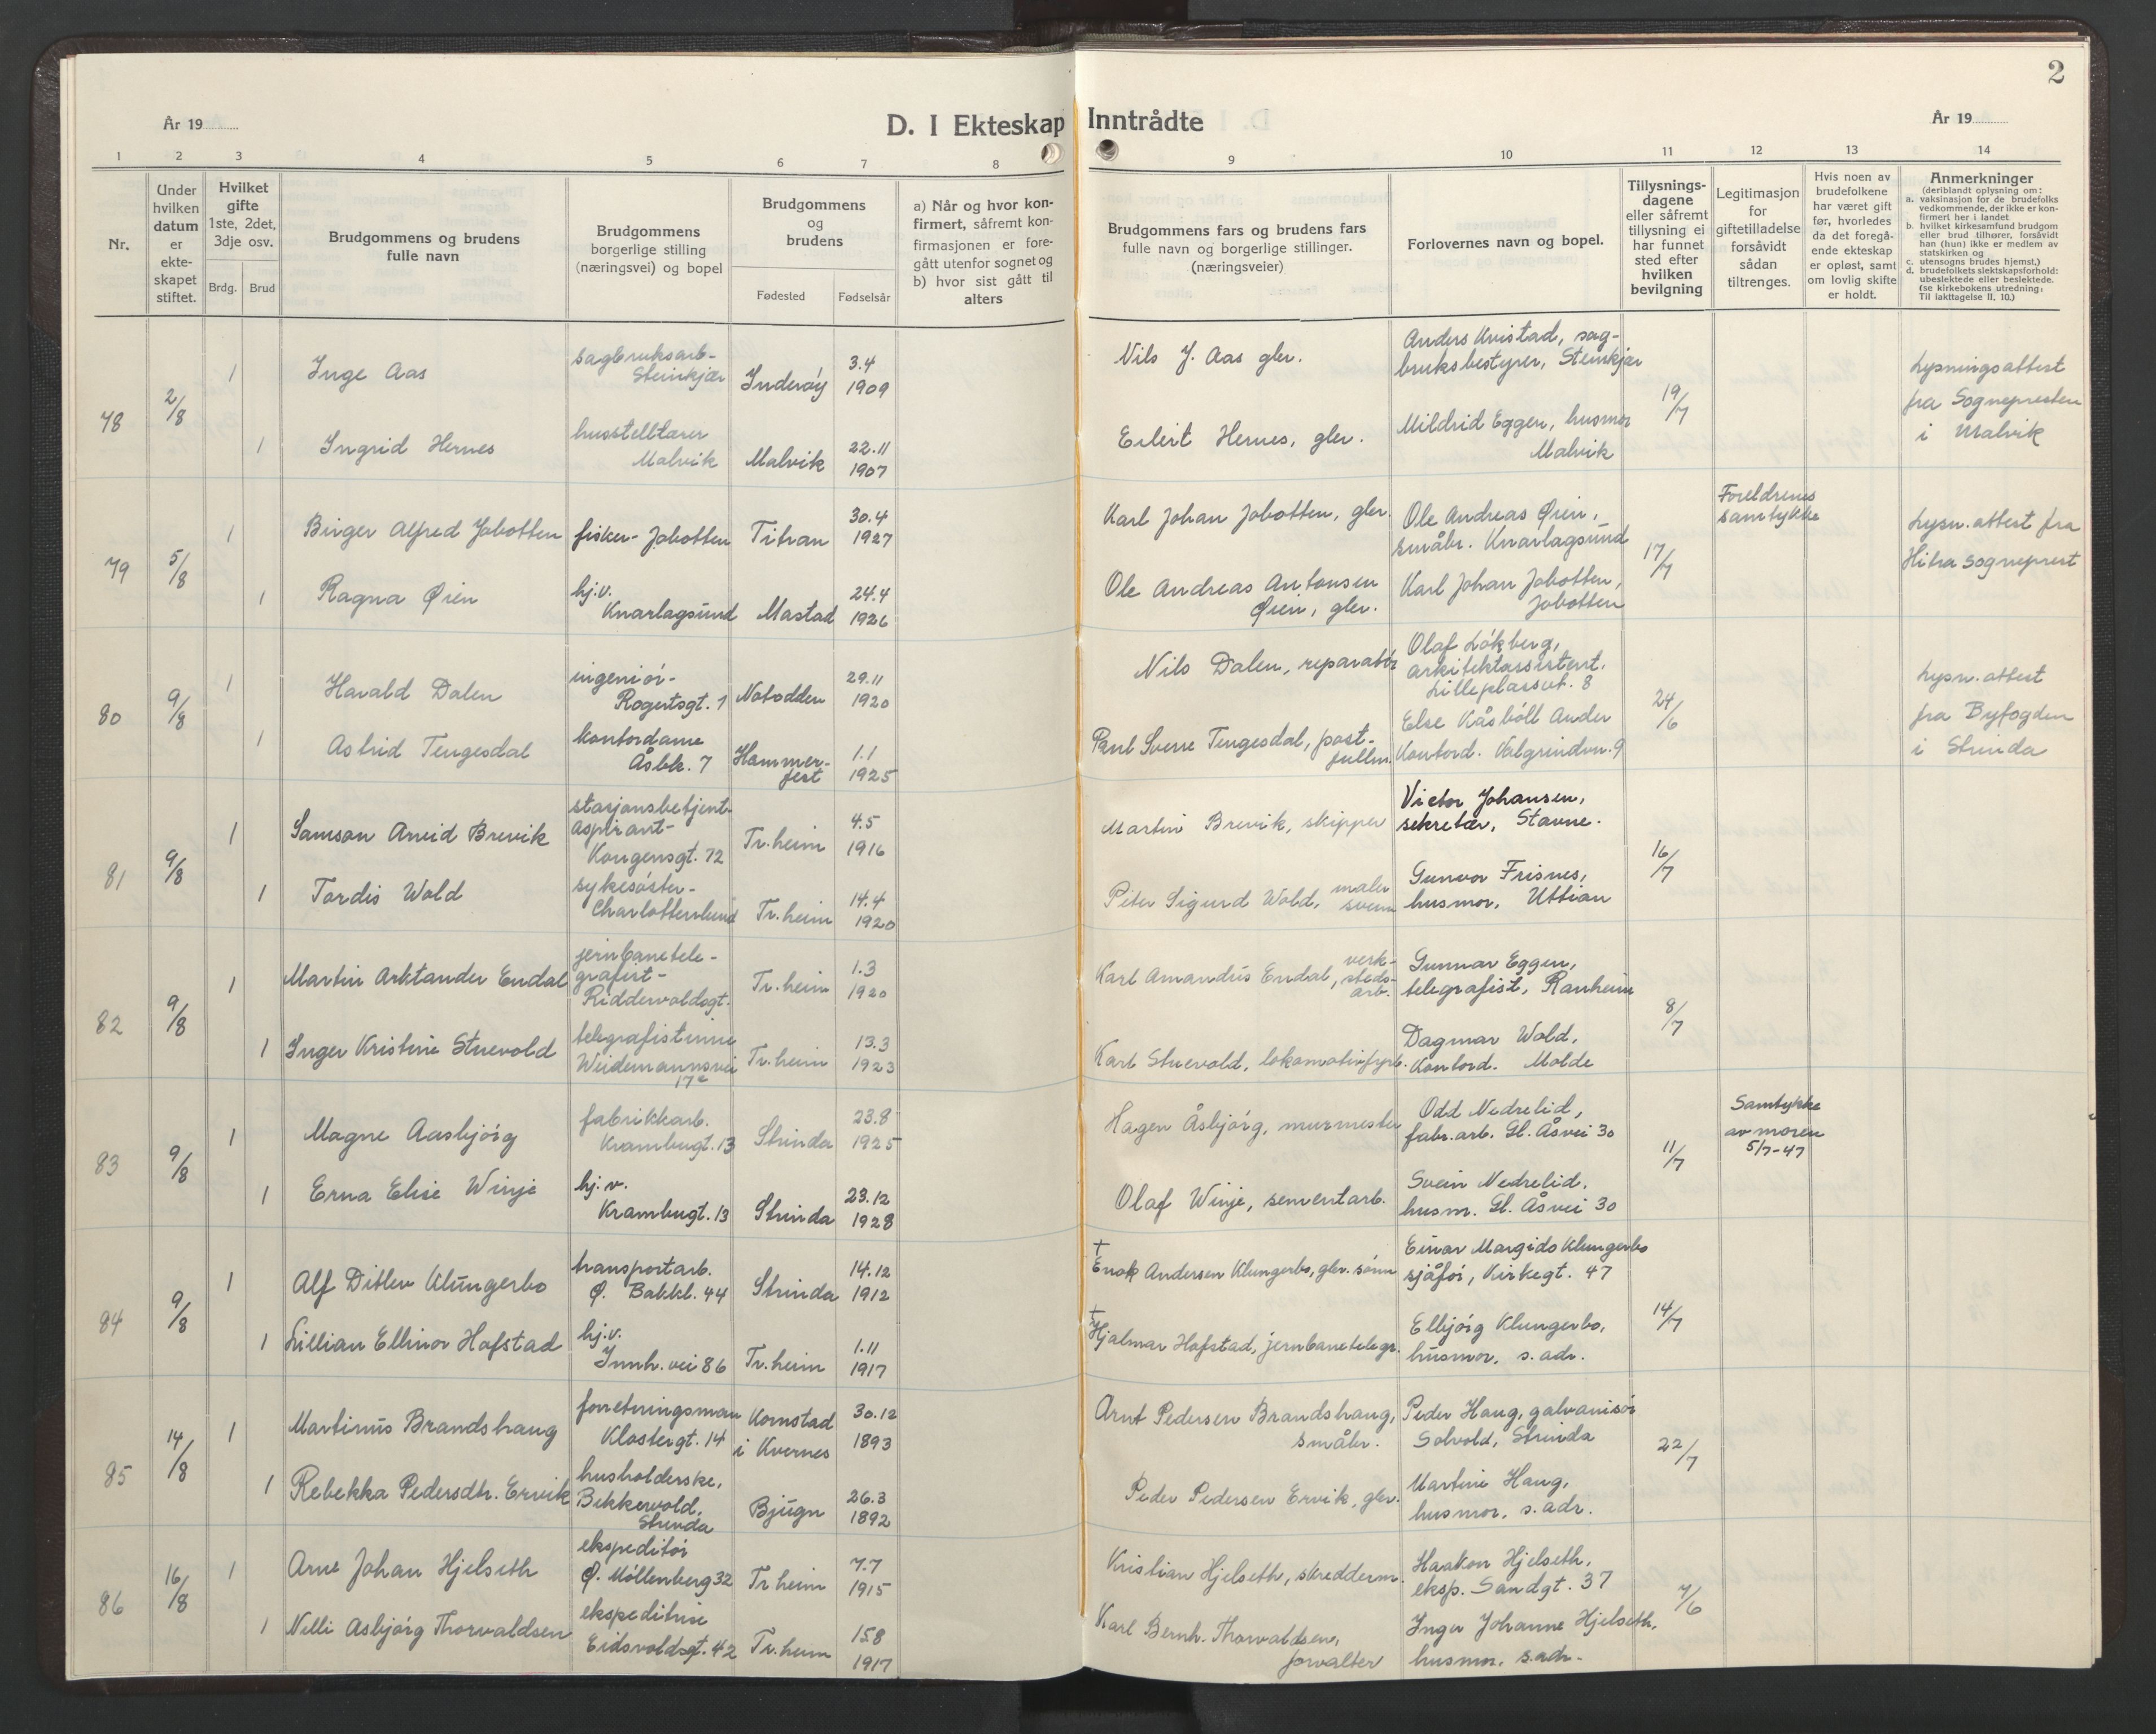 År 19
D. I Ekteskap
1
2
3
4
5
6
7
8
Nr.
Under hvilken datum er ekte-skapet stiftet.
Hvilket gifte
1ste, 2det, 3dje osv.
Brdg.
Brud
Brudgommens og brudens
fulle navn
Brudgommens
borgerlige stilling
(næringsvei) og bopel
Brudgommens
og
brudens
Fødested
Fødselsår
a) Når og hvor kon-
firmert, såfremt kon-
firmasjonen er fore-
gått utenfor sognet og
b) hvor sist gått til
alters
78
2/8
1
Inge Aas
sagbruksarb-
Steinkjær
Inderøy
3.4
1909
1
Ingrid Hernes
husstelltærer
Malvik
Malvik
22.11
1907
79
5/8
1
Birger Alfred Jøbotten
fisker- Jøbotten
Titran
30.4
1927
1
Ragna Øien
hj.v.
Knarlagsund
Mastad
24.4
1926
80
9/8
1
Harald Dalen
ingeniør-
Rogertsgt. 1
Notodden
29.11
1920
1
Astrid Tengesdal
kontordame
Åsbk. 7
Hammer-
fest
1.1
1925
81
9/8
1
Samson Arvid Brevik
stasjonsbetjent-
aspirant-
Kongensgt. 72
Tr.heim
4.5
1916
1
Tordis Wold
sykesøster-
Charlottenlund
Tr.heim
14.4
1920
82
9/8
1
Martin Arktander Endal
jernbanetele-
grafist-
Riddervoldsgt.
Tr.heim
1.3
1920
1
Inger Kristine Stuevold
telegrafistinne
Weidemannsvei
17c
Tr.heim
13.3
1923
83
9/8
1
Magne Aasbjörg
fabrikkarb.
Krambugt. 13
Strinda
23.8
1925
1
Erna Elise Winje
hj.v.
Krambugt. 13
Strinda
23.12
1928
84
9/8
1
Alf Ditlev Klungerbo
transportarb.
Ø. Bakkl. 44
Strinda
14.12
1912
1
Lillian Ellinor Hofstad
hj.v.
Innh. vei 86
Tr.heim
1.11
1917
85
14/8
1
Martinus Brandshaug
forretningsmann
Klostergt. 14
Kornstad
i Kvernes
30.12
1893
1
Rebekka Pedersdtr. Ervik
husholderske,
Bekkevold,
Strinda
Bjugn
26.3
1892
86
16/8
1
Arne Johan Hjelseth
ekspeditør
Ø. Møllenberg 32
Tr heim
7.7
1915
1
Nelli Asbjörg Thorvaldsen
ekspeditrise
Eidsvoldsgt. 42
Tr.heim
15.8
1917
2
Inntrådte
År 19
9
10
11
12
13
14
Brudgommens fars og brudens fars
fulle navn og borgerlige stillinger.
(næringsveier)
Forlovernes navn og bopel.
Tillysnings-
dagene
eller såfremt
tillysning ei
har funnet
sted efter
hvilken
bevilgning
Legitimasjon
for
giftetilladelse
forsåvidt
sådan
tiltrenges.
Hvis noen av
brudefolkene
har været gift
før, hvorledes
da det foregå-
ende ekteskap
er opløst, samt
om lovlig skifte
er holdt.
Anmerkninger
(deriblandt oplysning om:
a. vaksinasjon for de brudefolks
vedkommende, der ikke er kon-
firmert her i landet
b. hvilket kirkesamfund brudgom
eller brud tilhører, forsåvidt
han (hun) ikke er medlem av
statskirken og
c. utensogns brudes hjemst.)
d. brudefolkets slektskapsforhold:
ubeslektede eller beslektede.
(se kirkebokens utredning:
Til iakttagelse II. 10.)
Nils J. Aas gbr.
Anders Kvistad, sag-
bruksbestyrer, Steinkjær
19/7
Lysningsattest
fra Sognepresten
i Malvik
Eilert Hernes, gbr.
Mildrid Eggen, husmor
Malvik
Karl Johan Jøbotten, gbr.
Ole Andreas Øien,
småbr. Knarlagsund
17/7
Foreldrenes
samtykke
Lysn.attest fra
Hitra sogneprest
Ole Andreas Antonsen
Øien, gbr.
Karl Johan Jøbotten,
Jøbotten
Nils Dalen, reparatør
Olaf Løkberg,
arkitektassistent.
Lilleplassvt. 8
24/6
Lysn.attest
fra Byfogden
i Strinda
Paul Sverre Tengesdal, post-
fullm.
Else Kåsböll Ander
Kontord. Valgrindvn. 9
Martin Brevik, skipper
Victor Johansen,
sekretær, Stavne.
16/7
Peter Sigurd Wold, maler
svenn
Gunvor Frisnes,
husmor, Uttian
Karl Amandus Endal, verk-
steds-
arb.
Gunnar Eggen,
telegrafist, Ranheim
8/7
Karl Stuevold, lokomotivfyrb.
Dagmar Wold,
Kontord. Molde
Hagen Åsbjörg, murmester
Odd Nedrelid,
fabr.arb. Gl. Åsvei 30
11/7
Samtykke
av moren
5/7-47
Olaf Winje, sementarb.
Svein Nedrelid,
husm. Gl. Åsvei 30
†
Enok Andersen Klungerbo, gbr. sønn
Einar Margido Klungerbo
sjåfør, Kirkegt. 47
14/7
†
Hjalmar Hofstad, jernbanetelegr.
Ellbjörg Klungerbo,
husmor, s. adr.
Arnt Pedersen Brandshaug,
småbr.
Peder Haug, galvanisør
Solvold, Strinda
22/7
Peder Pedersen Ervik, gbr.
Martine Haug,
husmor, s. adr.
Kristian Hjelseth, skredderm.
Haakon Hjelseth,
eksp. Sandgt. 37
7/6
Karl Bernh. Thorvaldsen,
forvalter
Inger Johanne Hjelseth,
husmor, s.adr.